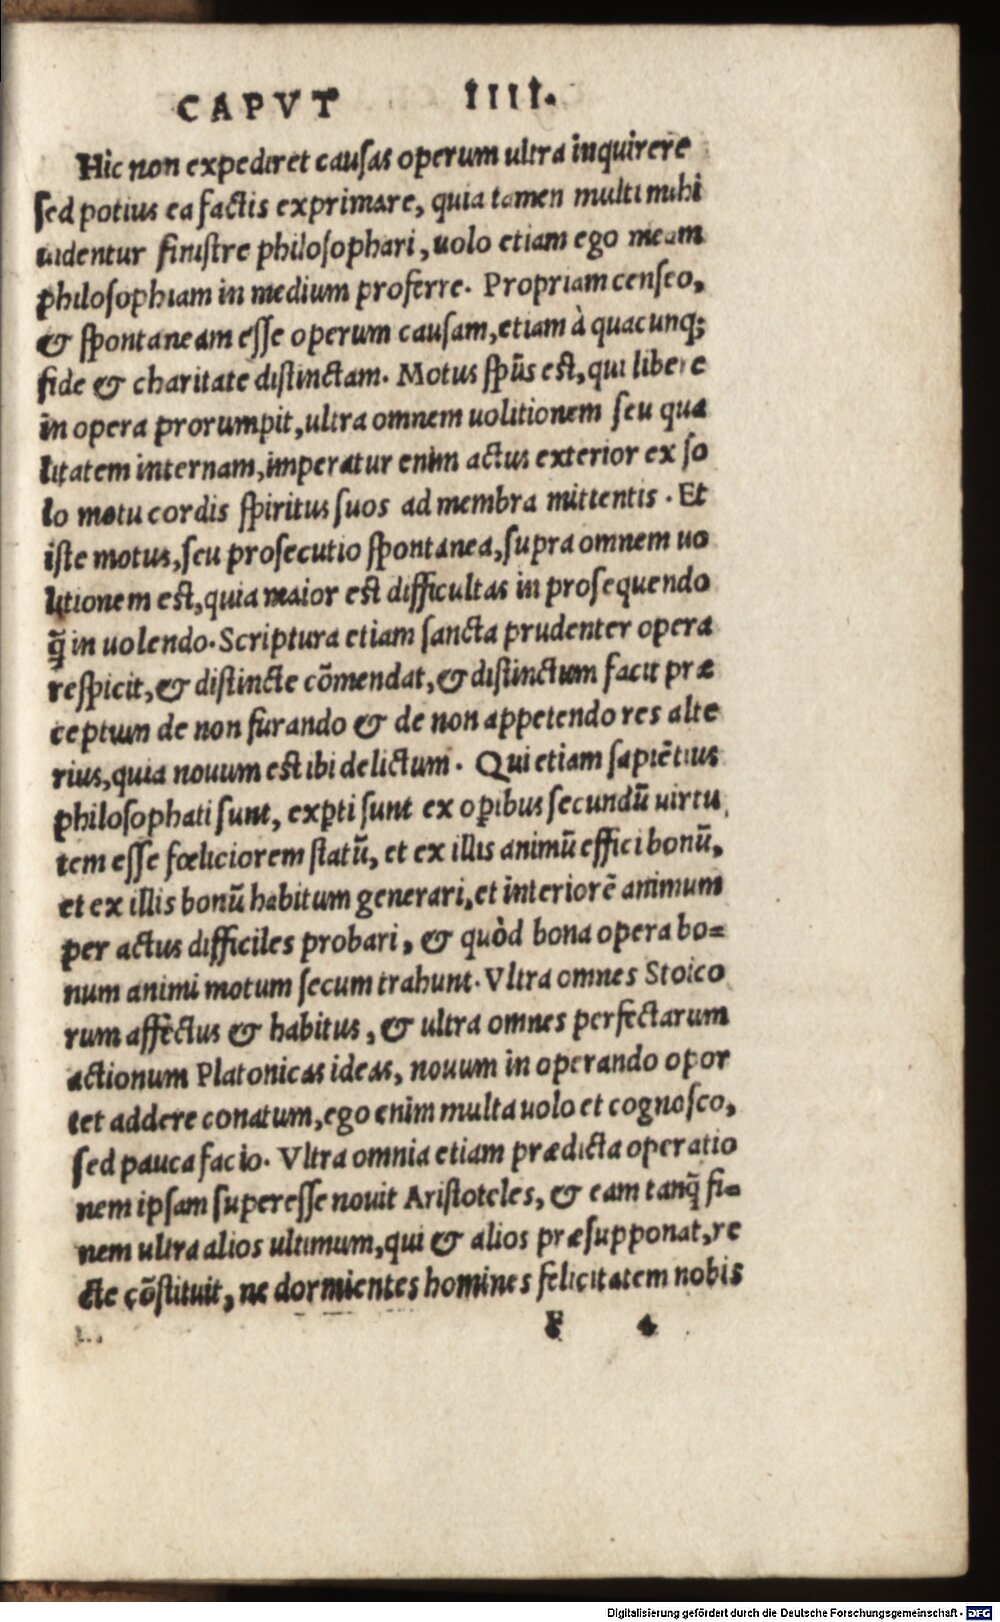 CAPVT IIII.
Hic non expediret causas operum ultra inquirere
sed potius ea factis exprimare, quia tamen multi mihi
uidentur sinistre philosophari, uolo etiam ego meam
philosophiam in medium proferre. Propriam censeo,
& spontaneam esse operum causam, etiam à quacunq;
fide & charitate distinctam. Motus spūs est, qui libere
in opera prorumpit, ultra omnem uolitionem seu qua
litatem internam, imperatur enim actus exterior ex so
lo motu cordis spiritus suos ad membra mittentis. Et
iste motus, seu prosecutio spontanea, supra omnem uo
litionem est, quia maior est difficultas in prosequendo
q̃ in uolendo. Scriptura etiam sancta prudenter opera
respicit, & distincte cōmendat, & distinctum facit præ
ceptum de non furando & de non appetendo res alte
rius, quia nouum est ibi delictum. Qui etiam sapiētius
philosophati sunt, expti sunt ex opibus secundū uirtu
tem esse fœliciorem statū, et ex illis animū effici bonū,
et ex illis bonū habitum generari, et interiorē animum
per actus difficiles probari, & quòd bona opera bo=
num animi motum secum trahunt. Vltra omnes Stoico
rum affectus & habitus, & ultra omnes perfectarum
actionum Platonicas ideas, nouum in operando opor
tet addere conatum, ego enim multa uolo et cognosco,
sed pauca facio. Vltra omnia etiam prædicta operatio
nem ipsam superesse nouit Aristoteles, & eam tanq̃ fi=
nem ultra alios ultimum, qui & alios præsupponat, re
cte cōstituit, ne dormientes homines felicitatem nobis
F 4
Digitalisierung gefördert durch die Deutsche Forschungsgemeinschaft - DFG